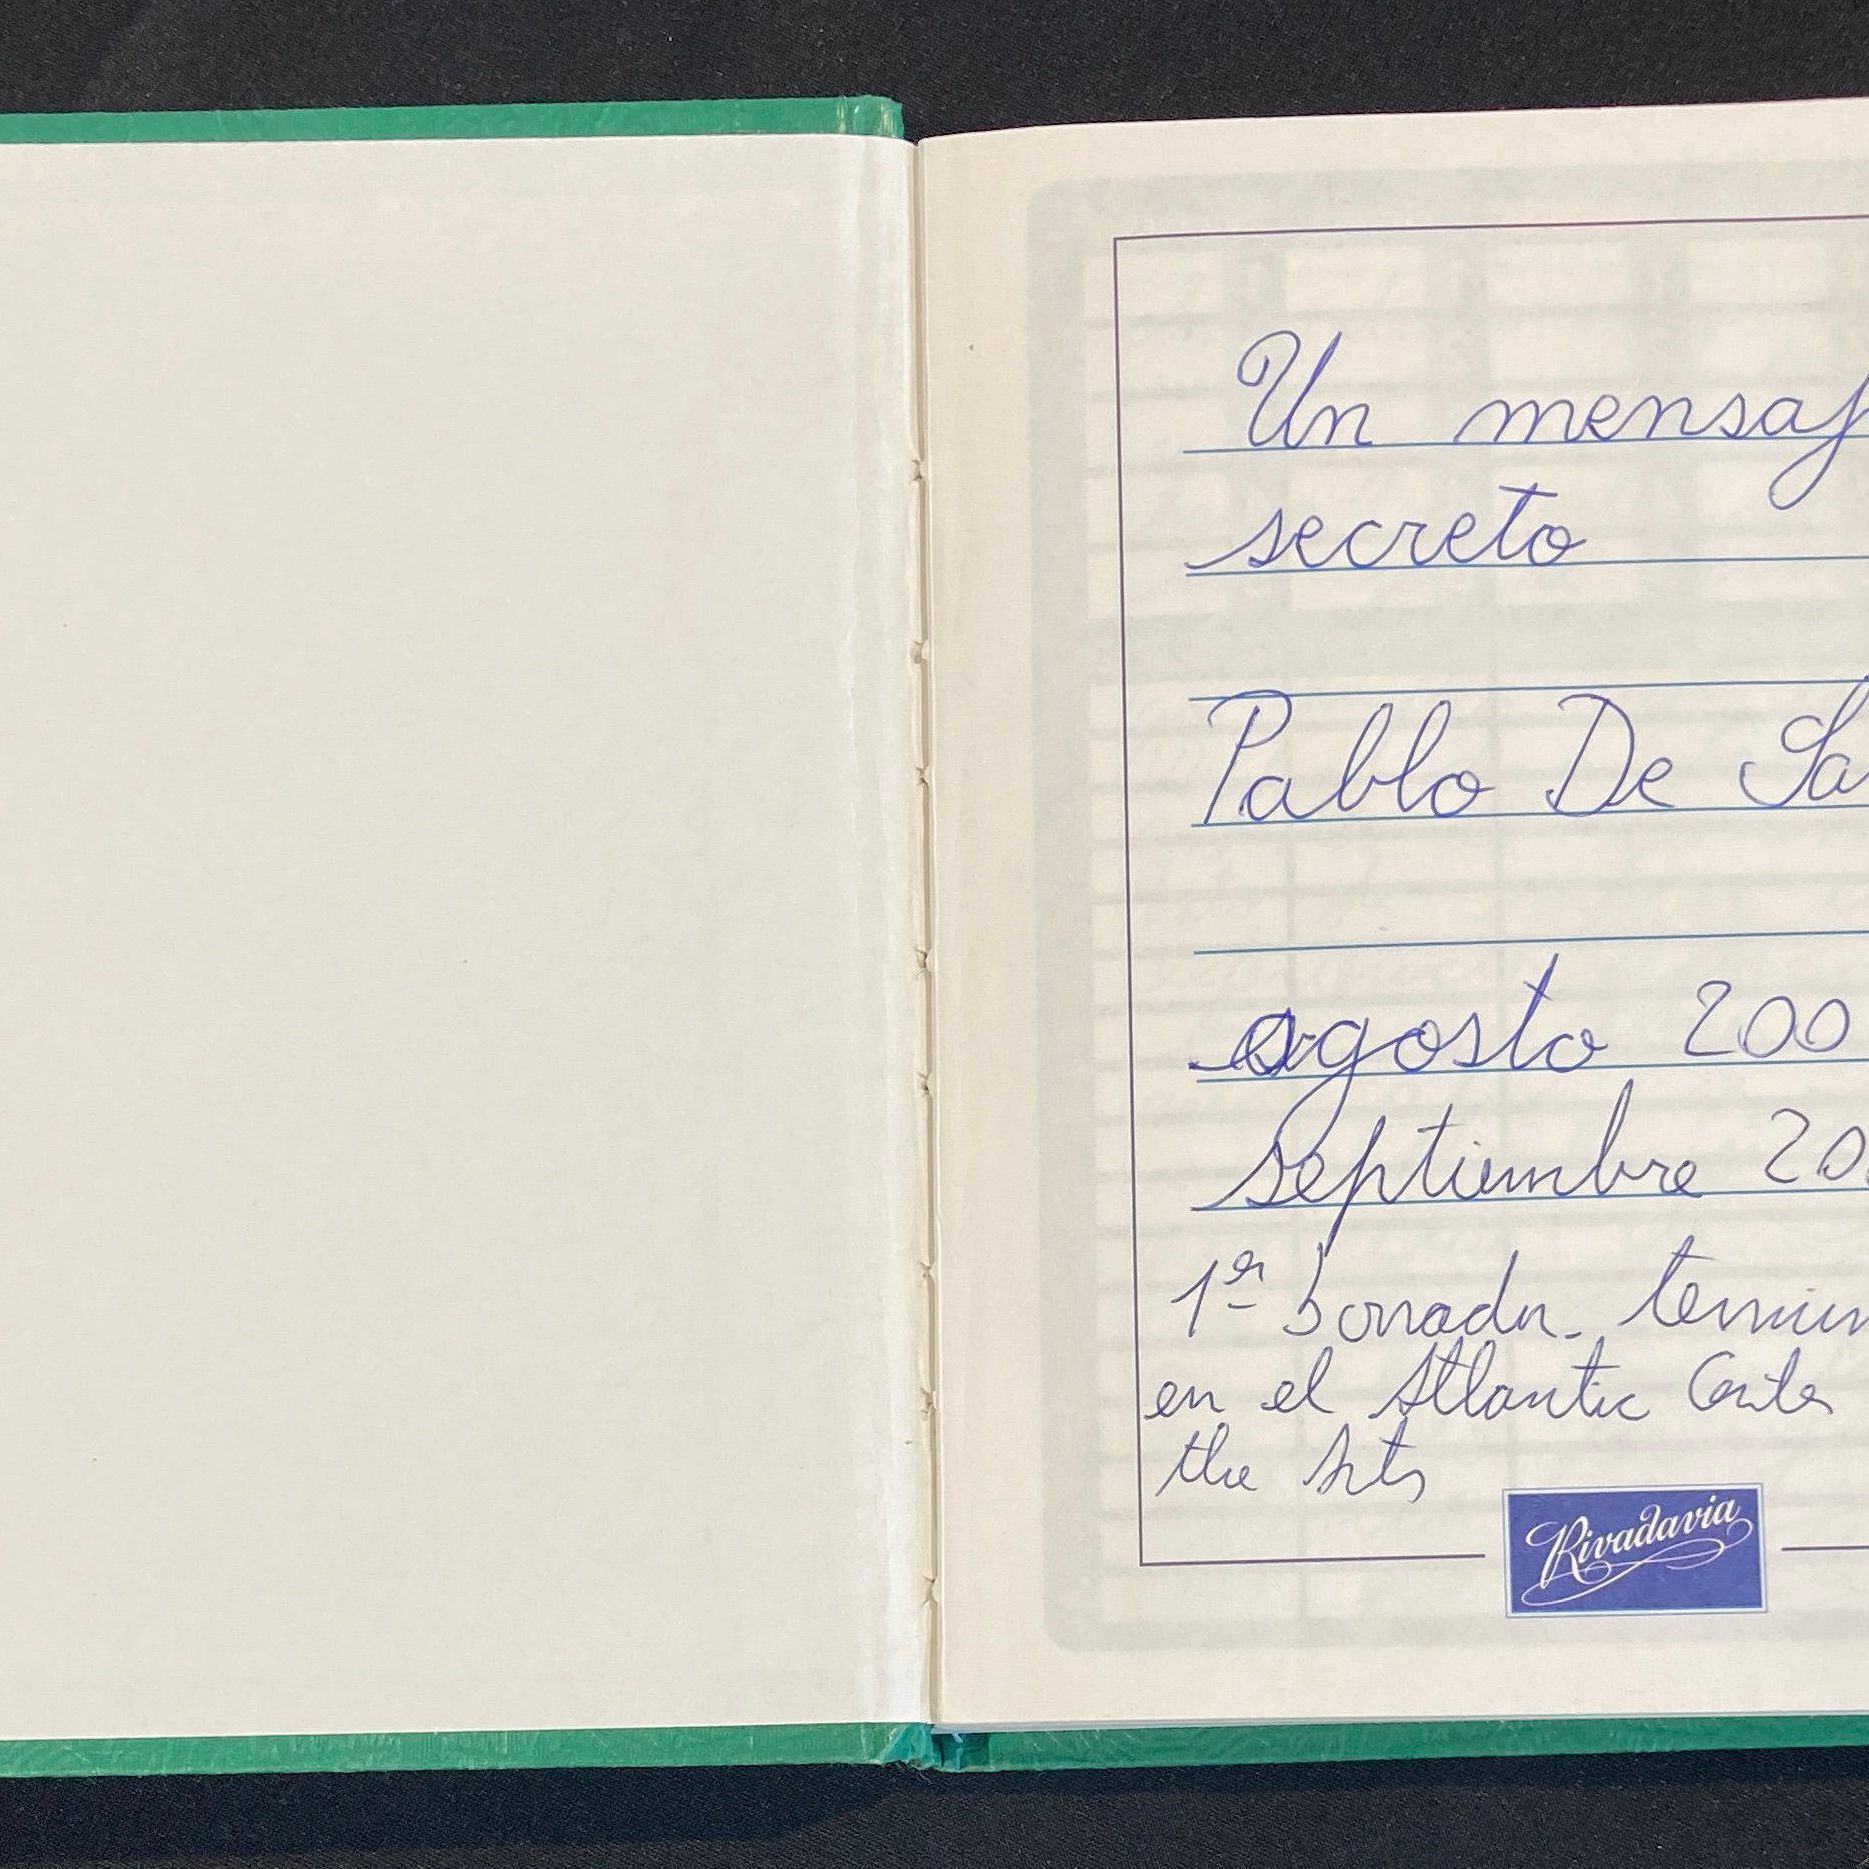 Un mensaj
secreto
Pablo De Sa
agosto 200
septiembre 20
1er borrador. termin
en el Atlantic Center
the Arts
Rivadavia